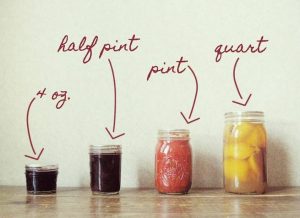 4 oz.
half pint
pint
quart